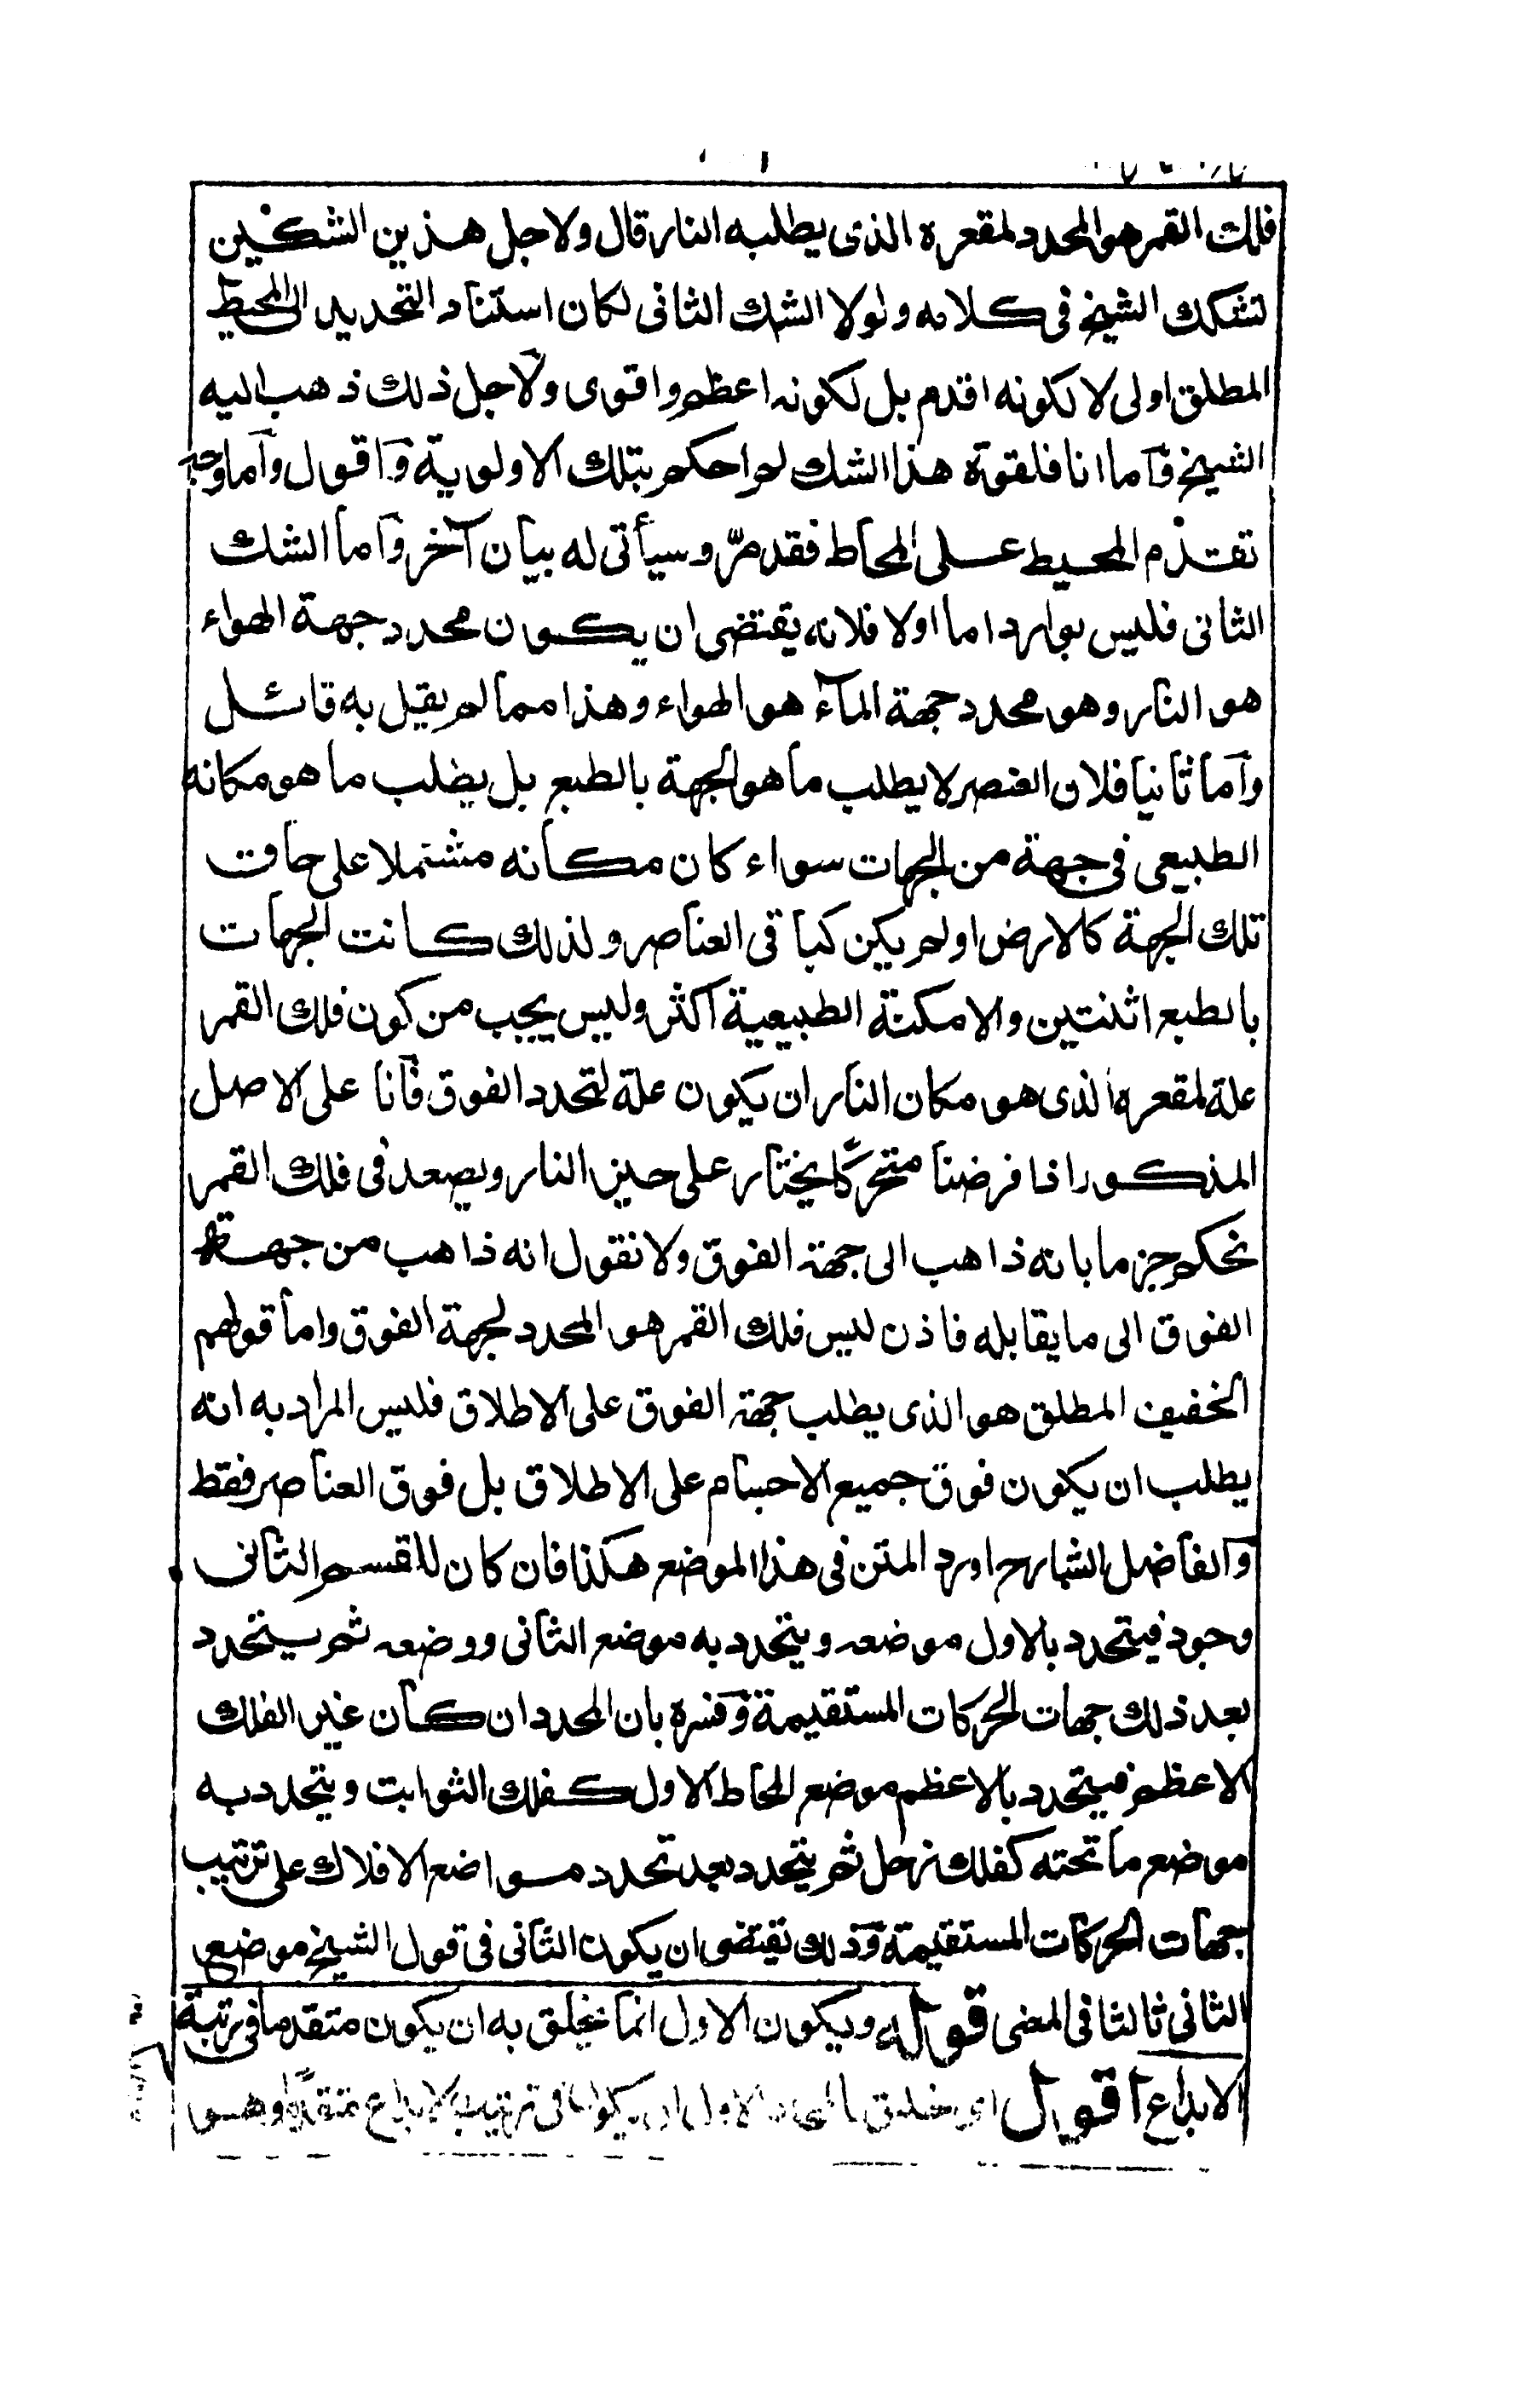 فلك القمر هو المحدد لمقعره الذى يطلبه النار قال ولاجل هذين الشكين
تشكك الشيخ فى كلامه ولولا الشك الثانى لكان استناد التحديد الى المحيط
المطلق اولى لا لكونه اقدم بل لكونه اعظم واقوى ولاجل ذلك ذهب اليه
الشيخ واما انا فلقوة هذا الشك لم احكم بتلك الاولوية واقول واما وجه
تقدم المحيط على المحاط فقد مرّ وسيأتى له بيان آخر واما الشك
الثانى فليس بوارد اما اولا فلانه يقتضى ان يكون محدد جهة الهواء
هو النار وهو محدد جهة المآء هو الهواء وهذا مما لم يقل به قائل
واما ثانيا فلان العنصر لا يطلب ما هو الجهة بالطبع بل يطلب ما هو مكانه
الطبيعى فى جهة من الجهات سواء كان مكانه مشتملا على حاقت
تلك الجهة كالارض او لم يكن كباقى العناصر ولذلك كانت الجهات
بالطبع اثنتين والامكنة الطبيعية اكثر وليس يجب من كون فلك القمر
علة لمقعره الذى هو مكان النار ان يكون علة لتحدد الفوق فانا على الاصل
المذكور اذا فرضنا متحركًا يختار على حيز النار ويصعد فى فلك القمر
نحكم جزما بانه ذاهب الى جهة الفوق ولا نقول انه ذاهب من جهة
الفوق الى ما يقابله فاذن ليس فلك القمر هو المحدد لجهة الفوق واما قولهم
الخفيف المطلق هو الذى يطلب جهة الفوق على الاطلاق فليس المراد به انه
يطلب ان يكون فوق جميع الاجسام على الاطلاق بل فوق العناصر فقط
والفاضل الشارح اورد المتن فى هذا الموضع هكذا فان كان للقسم الثانى
وجود فيتحدد بالاول موضعه ويتحدد به موضع الثانى ووضعه ثم يتحدد
بعد ذلك جهات الحركات المستقيمة وفسره بان المحدد ان كان غير الفلك
الاعظم فيتحدد بالاعظم موضع المحاط الاول كفلك الثوابت ويتحدد به
موضع ما تحته كفلك زحل ثم يتحدد بعد تحدد مواضع الافلاك على ترتيب
جهات الحركات المستقيمة وذلك يقتضى ان يكون الثانى فى قول الشيخ موضع
الثانى ثالثا فى المعنى قوله ويكون الاول انما يخلق به ان يكون متقدما فى رتبة
الابداع اقول اى خليق الاول ان يكون فى ترتيب الابداع متقدمًا وهو